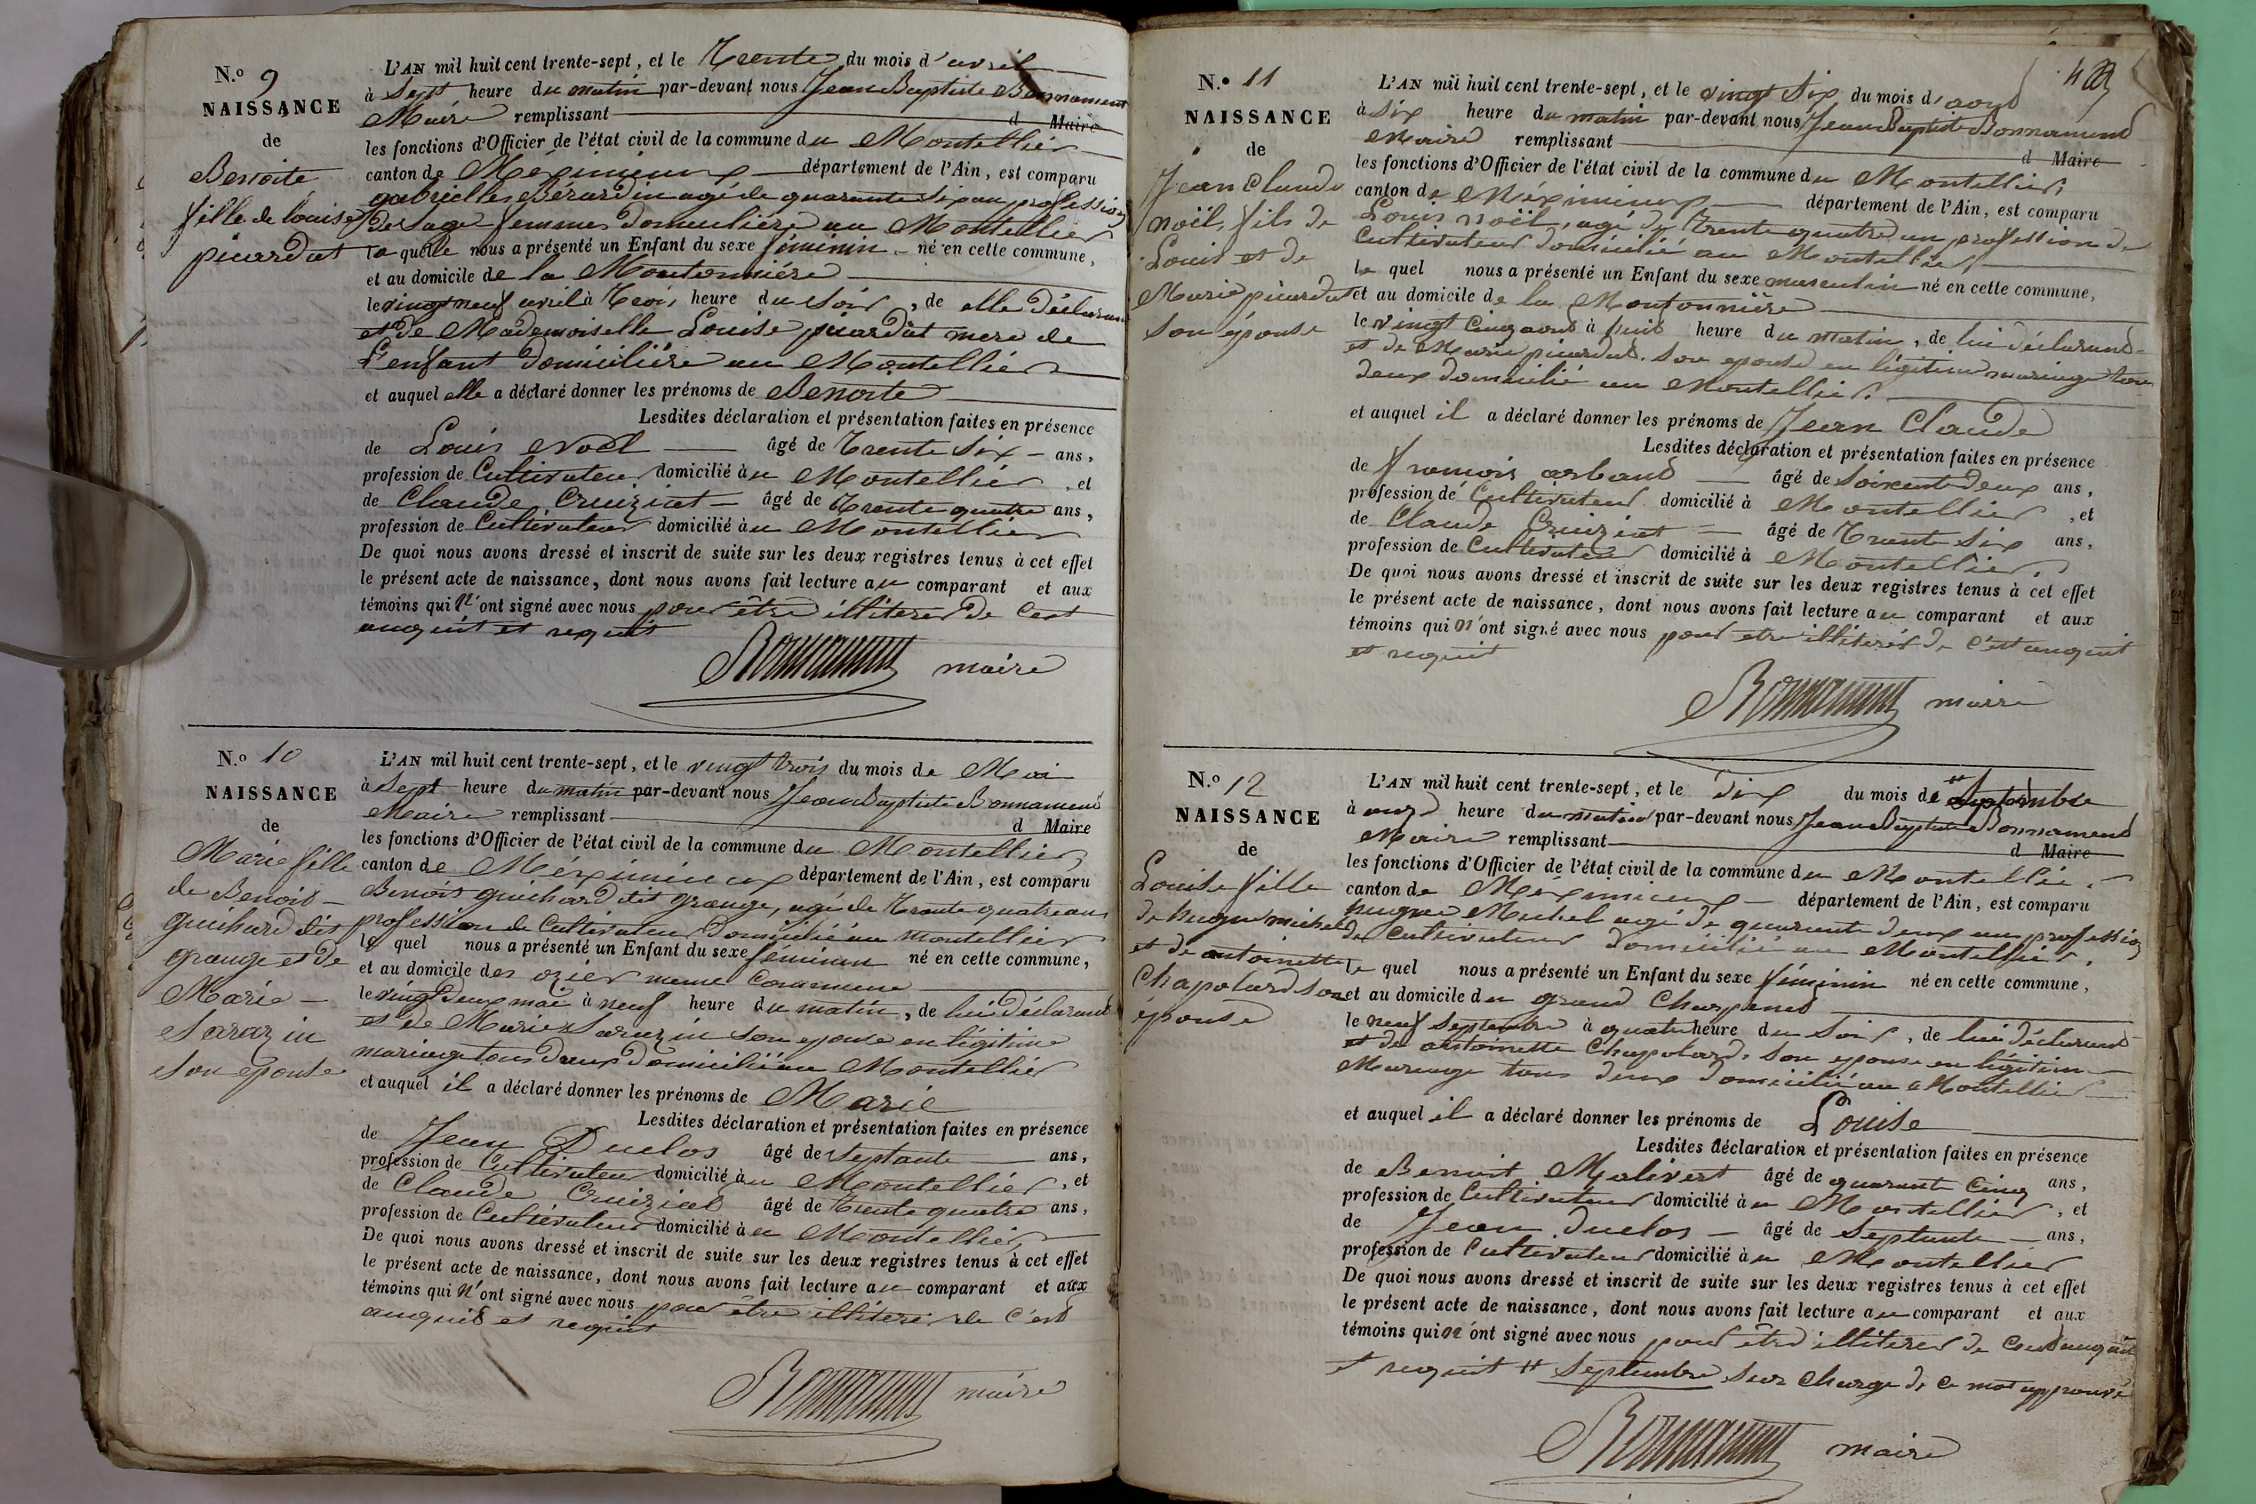 N.o 9
NAISSANCE
de
Benoite
fille de louise
picardat
L'AN mil huit cent trente-sept, et le Trente du mois d'avril
à Sept heure du matin par-devant nous Jean Baptiste Bonnamend
Maire remplissant d Maire
les fonctions d'Officier de l'état civil de la commune du Montellier
canton de Méximieux département de l'Ain, est comparu
gabrielle Bérardin agé de quarante six an profession
de Sage femme domicilière au Montellier
la quelle nous a présenté un Enfant du sexe féminin né en cette commune,
et au domicile de la Moutonnière
le vingt neuf avril à Trois heure du Soir, de elle déclarand
et de Mademoiselle Louise picardat mere de
L'enfant domicilière au Montellier
et auquel elle a déclaré donner les prénoms de Benoite
Lesdites déclaration et présentation faites en présence
de Louis Noël âgé de Trente Six ans,
profession de Cultivateur domicilié au Montellier, et
de Claude Cruiziat âgé de Trente quatre ans,
profession de Cultivateur domicilié au Montellier
De quoi nous avons dressé et inscrit de suite sur les deux registres tenus à cet effet
le présent acte de naissance, dont nous avons fait lecture au comparant et aux
témoins qui n'ont signé avec nous pour être illiterer de c'est
anquit et requit
Bonnamend maire
N.o 10
NAISSANCE
de
Marie fille
de Benoit
guichard dit
grange et de
Marie
Sarazin
son epouse
L'AN mil huit cent trente-sept, et le vingt trois du mois de Mai
à Sept heure du matin par-devant nous Jean Baptiste Bonnamend
Maire remplissant d Maire
les fonctions d'Officier de l'état civil de la commune du Montellier
canton de Méximieux département de l'Ain, est comparu
Benoit guichard dit grange, agé de Trente quatre ans
profession de Cultivateur domicilié au montellier
le quel nous a présenté un Enfant du sexe féminin né en cette commune,
et au domicile des ozier meme commune
le vingt deux mai à neuf heure du matin, de lui déclarand
et de Marie Sarazin son epouse en légitime
mariage tous deux domicilié au Montellier
et auquel il a déclaré donner les prénoms de Marie
Lesdites déclaration et présentation faites en présence
de Jean Duclos âgé de septante ans,
profession de Cultivateur domicilié au Montellier, et
de Claude Cruiziat âgé de Trente quatre ans,
profession de Cultivateur domicilié au Montellier
De quoi nous avons dressé et inscrit de suite sur les deux registres tenus à cet effet
le présent acte de naissance, dont nous avons fait lecture au comparant et aux
témoins qui n'ont signé avec nous pour être illiterer de c'est
anquit et requit
Bonnamend maire
N.o 11
NAISSANCE
de
Jean Claude
noël, fils de
Louis et de
Marie picardat
son épouse
L'AN mil huit cent trente-sept, et le vingt Six du mois d'aout
à Six heure du matin par-devant nous Jean Baptiste Bonnamend
Maire remplissant d Maire
les fonctions d'Officier de l'état civil de la commune du Montellier
canton de Méximieux département de l'Ain, est comparu
Louis noël, agé de Trente quatre an profession de
Cultivateur domicilié au Montellier
le quel nous a présenté un Enfant du sexe masculin né en cette commune,
et au domicile de la Moutonnière
le vingt Cinq aout à huit heure du matin, de lui déclarand
et de Marie picardat son epouse en légitime mariage tous
deux domicilié au Montellier
et auquel il a déclaré donner les prénoms de Jean Claude
Lesdites déclaration et présentation faites en présence
de françois arband âgé de Soixent deux ans,
profession de Cultivateur domicilié à Montellier, et
de Claude Cruiziat âgé de Trente Six ans,
profession de Cultivateur domicilié à Montellier
De quoi nous avons dressé et inscrit de suite sur les deux registres tenus à cet effet
le présent acte de naissance, dont nous avons fait lecture au comparant et aux
témoins qui n'ont signé avec nous pour etre illiterer de c'est anquit
et requit
Bonnamend maire
N.o 12
NAISSANCE
de
Louise fille
de hugue michel
et de antoinette
Chapolard son
épouse
L'AN mil huit cent trente-sept, et le dix du mois de septembre
à onze heure du matin par-devant nous Jean Baptiste Bonnamend
Maire remplissant d Maire
les fonctions d'Officier de l'état civil de la commune du Montellier
canton de Méximieux département de l'Ain, est comparu
hugue Michel agé de quarante deux an profession
de Cultivateur domicilié au Montellier
le quel nous a présenté un Enfant du sexe féminin né en cette commune,
et au domicile du grand Charpend
le neuf septembre à quatre heure du Soir, de lui déclarand
et de antoinette Chapolard son epouse en légitime
Mariage tous deux domicilié au Montellier
et auquel il a déclaré donner les prénoms de Louise
Lesdites déclaration et présentation faites en présence
de Benoit Malivert âgé de quarant cinq ans,
profession de Cultivateur domicilié au Montellier, et
de Jean Duclos âgé de Septante ans,
profession de Cultivateur domicilié au Montellier
De quoi nous avons dressé et inscrit de suite sur les deux registres tenus à cet effet
le présent acte de naissance, dont nous avons fait lecture au comparant et aux
témoins qui n'ont signé avec nous pour être illiterer de c'est anquit
et requit # Septembre sur charge de ce mot approuvé
Bonnamend maire